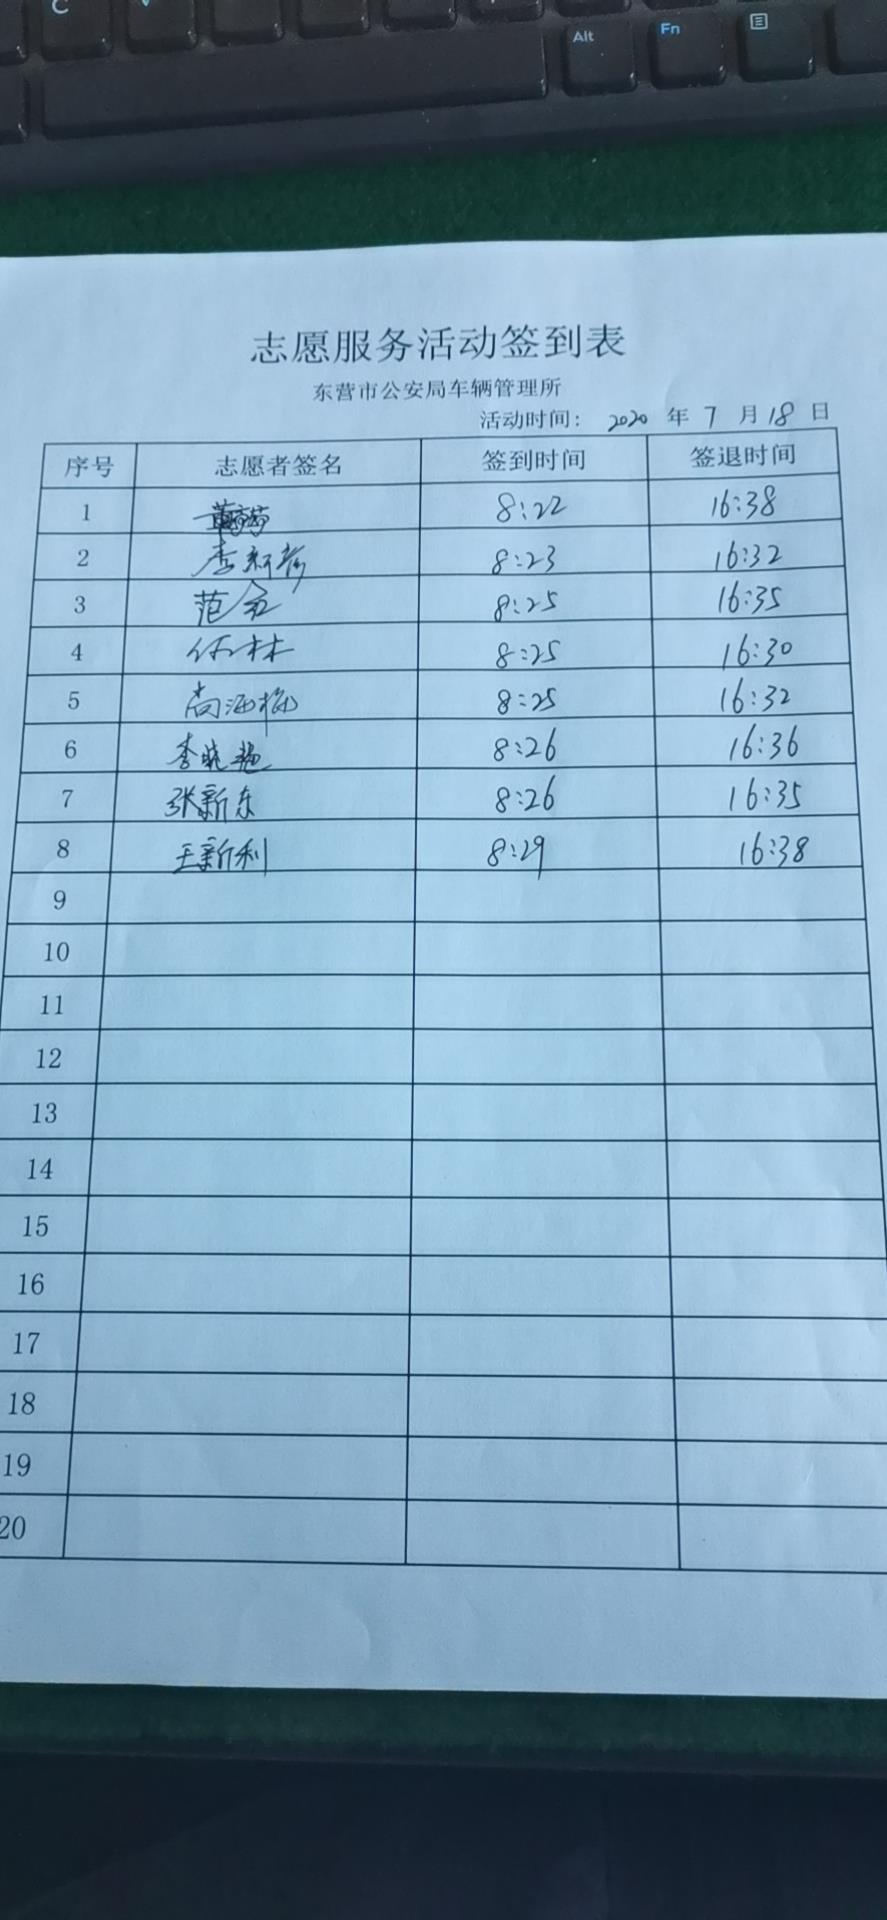 C
V
Alt
Fn
志愿服务活动签到表
东营市公安局车辆管理所
活动时间： 2020 年 7 月 18 日
序号 志愿者签名 签到时间 签退时间
1 8:22 16:38
2 李新 8:23 16:32
3 范 8:25 16:35
4 林 8:25 16:30
5 尚海梅 8:25 16:32
6 李晓艳 8:26 16:36
7 张新东 8:26 16:35
8 王新利 8:29 16:38
9
10
11
12
13
14
15
16
17
18
19
20